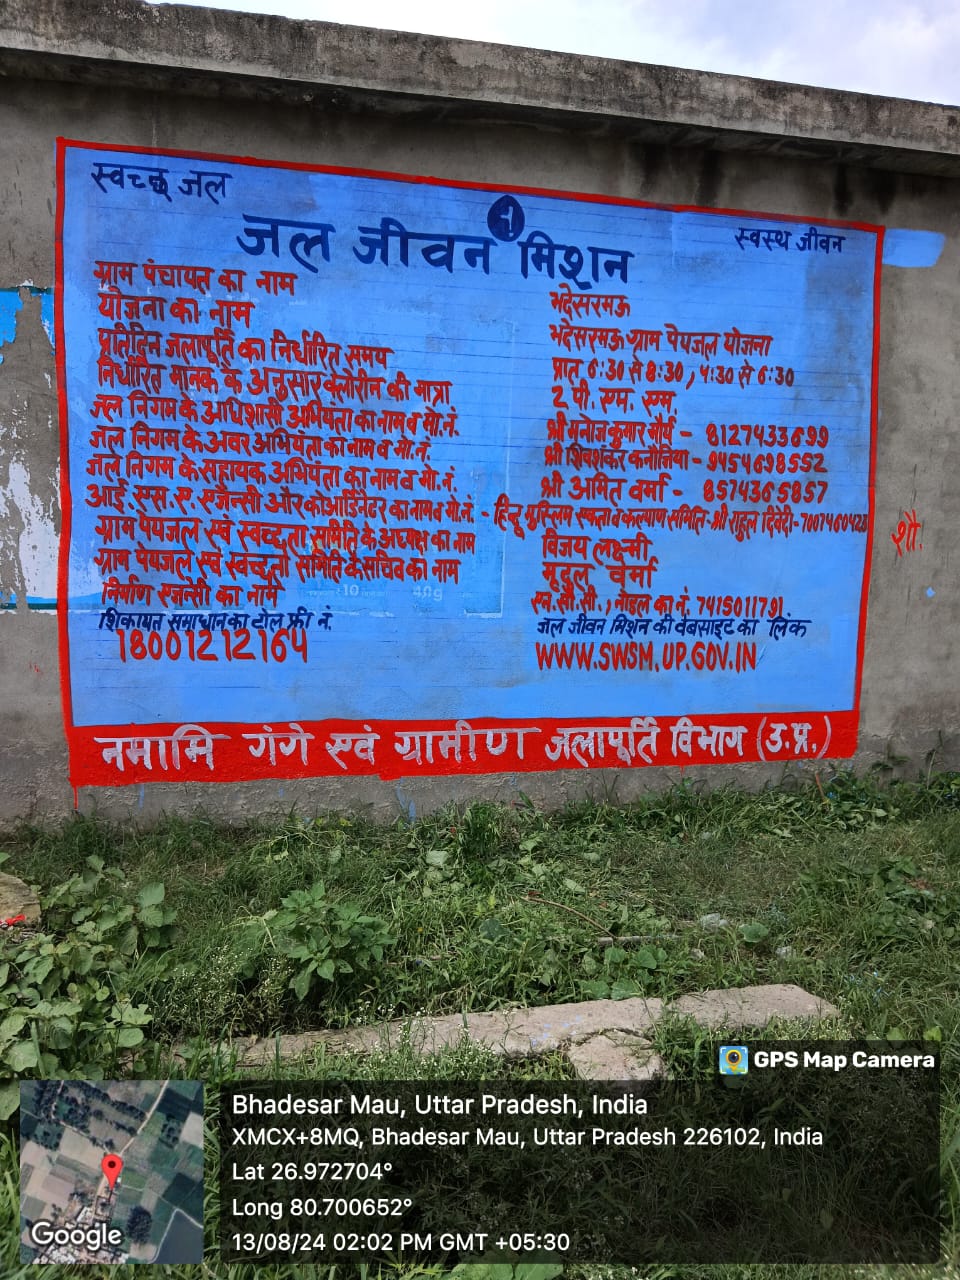 स्वच्छ जल
स्वस्थ जीवन
जल जीवन मिशन
ग्राम पंचायत का नाम
भदेसरमऊ
योजना का नाम
भदेसरमऊ ग्राम पेयजल योजना
प्रतिदिन जलापूर्ति का निर्धारित समय
प्रात 6:30 से 8:30 , 4:30 से 6:30
निर्धारित मानक के अनुसार क्लोरीन की मात्रा
2 पी. एम. एम
जल निगम के अधिशासी अभियंता का नाम व मो.नं.
श्री मनोज कुमार मौर्य - 8127433699
जल निगम के अवर अभियंता का नाम व मो.नं.
श्री शिवशंकर कनौजिया - 9454698552
जल निगम के सहायक अभियंता का नाम व मो.नं.
श्री अमित वर्मा - 8574365857
आई. एस. ए. एजेन्सी और कोआर्डिनेटर का नाम व मो.नं. - हिन्दू मुस्लिम एकता व कल्याण समिति-श्री राहुल द्विवेदी-7007460428
ग्राम पेयजल एवं स्वच्छता समिति के अध्यक्ष का नाम
विजय लक्ष्मी
ग्राम पेयजल एवं स्वच्छता समिति के सचिव का नाम
मृदुल वर्मा
निर्माण एजेन्सी का नाम
एन. सी. सी. , नोडल का नं. 7415011791
शिकायत समाधान का टोल फ्री नं.
जल जीवन मिशन की वेबसाइट का लिंक
18001212164
WWW.SWSM.UP.GOV.IN
नमामि गंगे एवं ग्रामीण जलापूर्ति विभाग (उ.प्र.)
शौ.
GPS Map Camera
Bhadesar Mau, Uttar Pradesh, India
XMCX+8MQ, Bhadesar Mau, Uttar Pradesh 226102, India
Lat 26.972704°
Long 80.700652°
13/08/24 02:02 PM GMT +05:30
Google